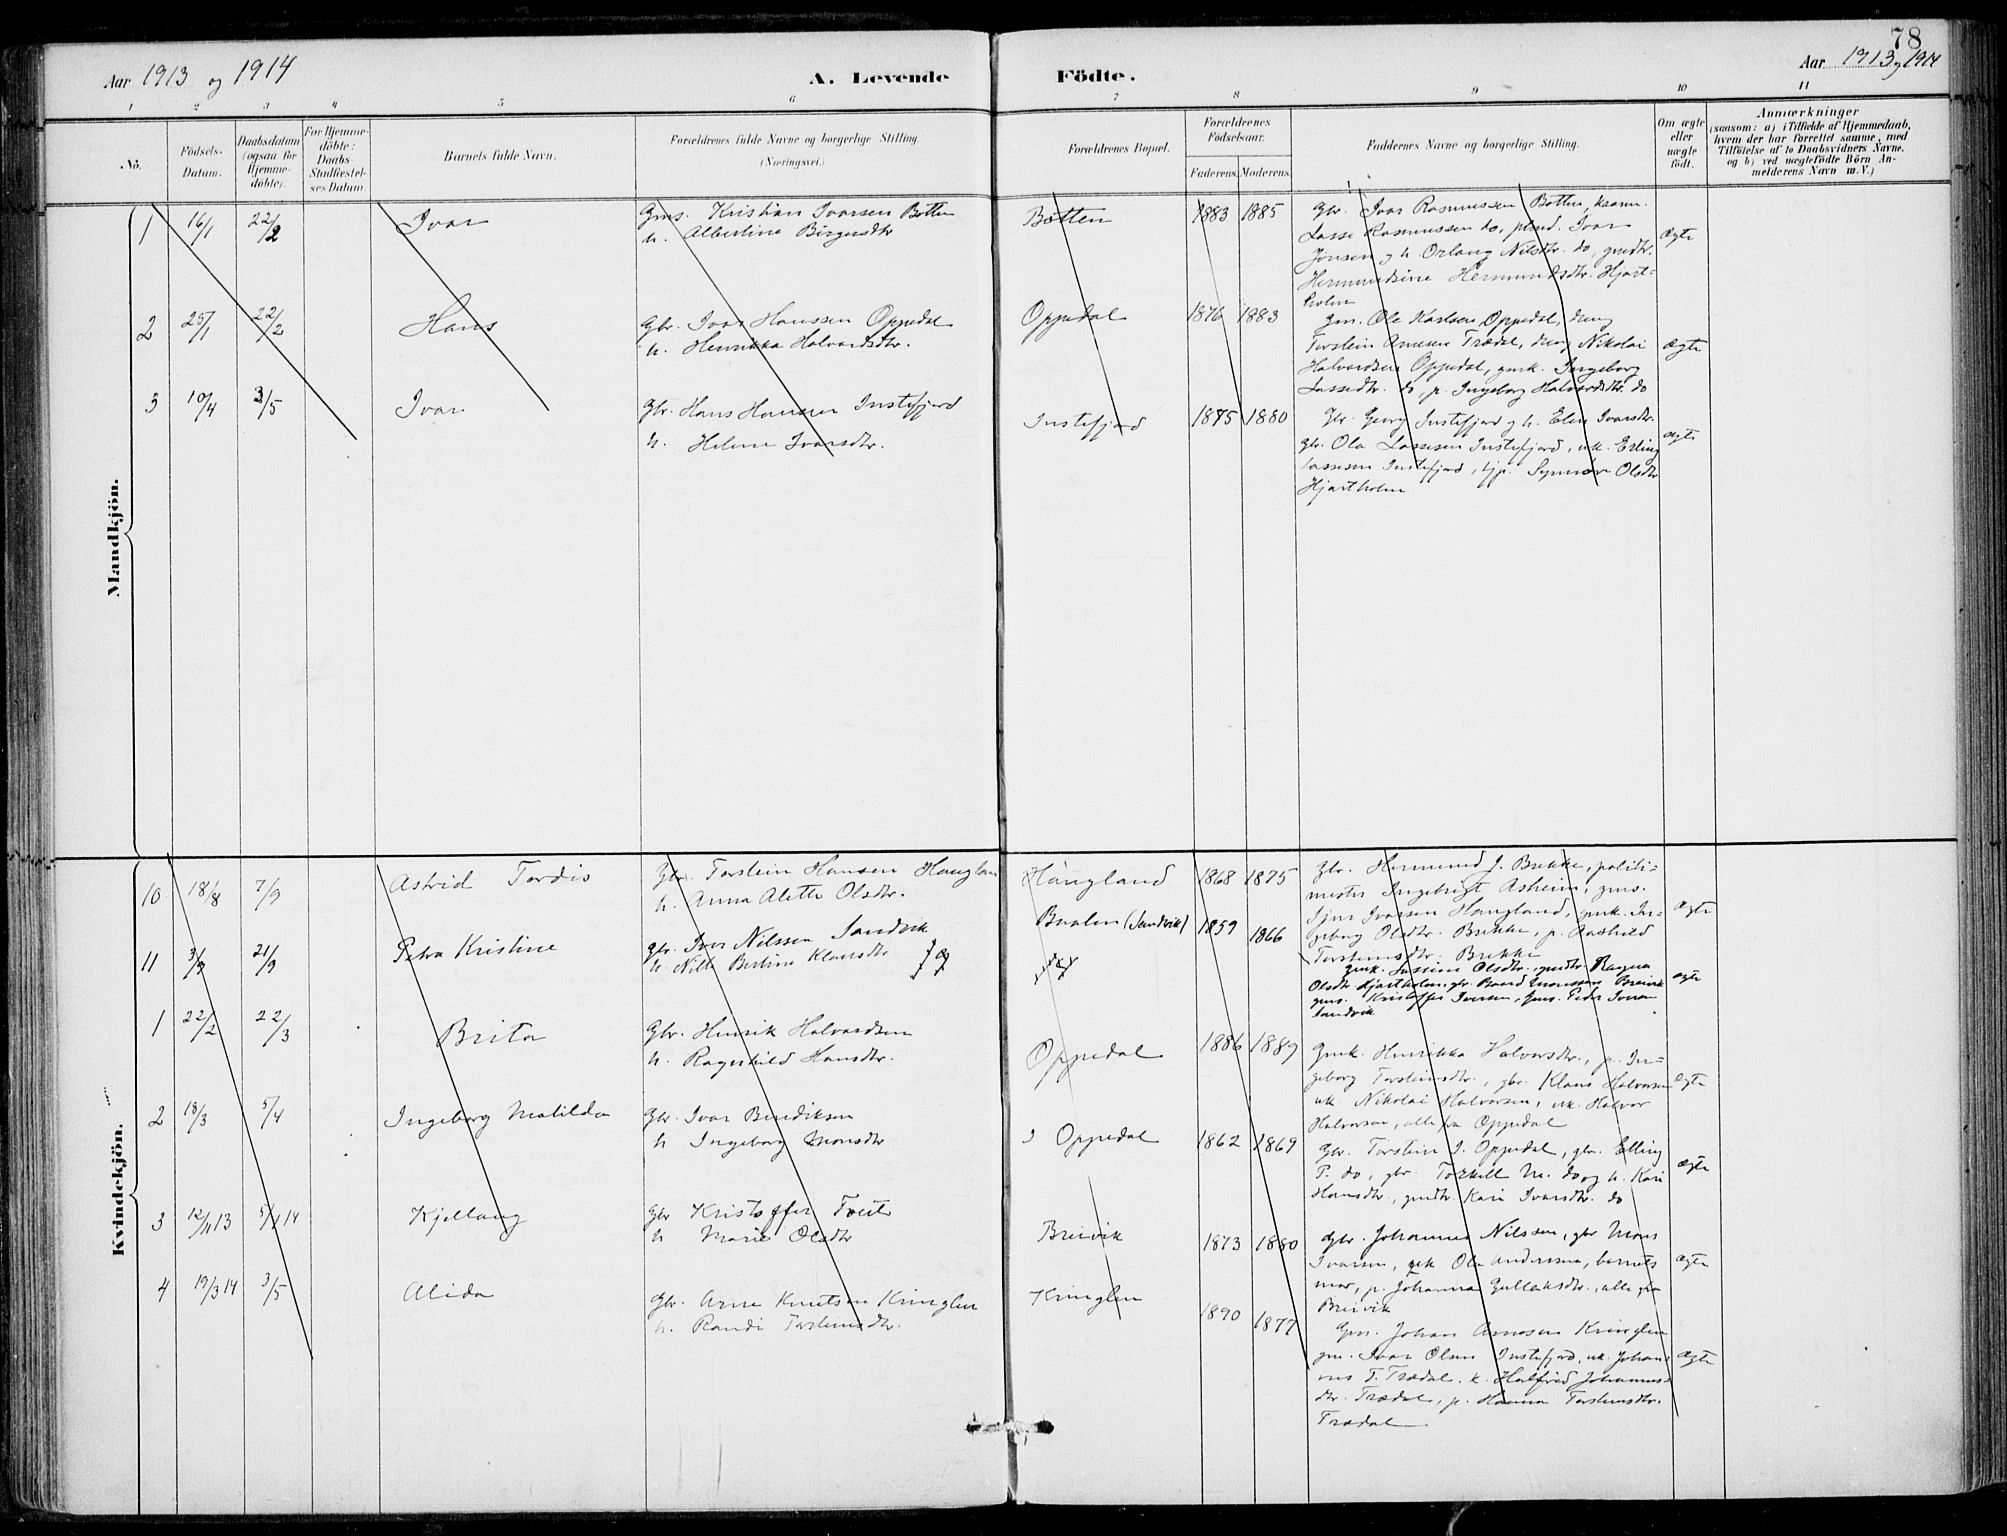 78
Aar 1913 og 1914
A. Levende Födte.
Aar 1913 og 1914
1 2 3 4 5 6 7 8 9 10 11
No.
Födsels-
Datum.
Daabsdatum
(ogsaa for
Hjemme-
döbte).
For Hjemme-
döbte:
Daabs-
Stadfæstel-
ses Datum
Barnets fulde Navn.
Forældrenes fulde Navne og borgerlige Stilling
(Næringsvei.)
Forældrenes Bopæl.
Forældrenes
Födselsaar.
Faderens. Moderens.
Faddernes Navne og borgerlige Stilling.
Om ægte
eller
uægte
födt.
Anmærkninger
(saasom: a) i Tilfælde af Hjemmedaab,
hvem der har forrettet samme, med
Tilföielse af to Daabsvidners Navne.
og b) ved uægtefödte Börn An-
melderens Navn m.V.)
Mandkjön.
1 16/1 22/2 Ivar
Gms. Kristian Ivarsen Botten
h. Albertine Birgersdtr
Botten 1883 1885
Gbr. Ivar Rasmussen Botten,
Lasse Rasmussen do, Ivar
Jonsen og h. Nilsdtr. do,
Hermundsdtr. Hjart-
holm
ægte
2 25/1 22/2 Hans
Gbr. Ivar Hanssen Oppedal
h. Henrikka Halvardsdtr.
Oppedal 1876 1883
Gm. Ole Karlsen Oppedal, dreng
Torstein Trædal, dreng Nikolai
Halvardsen Oppedal, gmk. Ingeborg
Lassedtr. do, p. Ingeborg Halvardsdtr. do
ægte
3 10/4 3/5 Ivar
Gbr. Hans Hansen Instefjord
h. Helene Ivarsdtr.
Instefjord 1875 1880
Gbr. Georg Instefjord og h. Elen Ivarsdtr.
gbr. Ola Lassesen Instefjord, uk. Erling
Lassesen Instefjord, tjp. Synnøve Olsdtr
Hjartholm
ægte
Kvindekjön.
10 18/8 7/9 Astrid Tordis
Gbr. Torstein Hansen Haugland
h. Anna Alette Olsdtr.
Haugland 1868 1875
Gbr. Hermund J. Brekke, politi-
mester Ingebrigt Asheim, gms.
Ivarsen Haugland, gmk. In-
geborg Olsdtr. Brekke, p. Aashild
Torsteinsdtr. Brekke
ægte
11 3/9 21/9 Petra Kristine
gbr. Iver Nilssen Sandvik
h. Bertine Klausdtr
(Sandvik) 1859 1866
gmk. Olsdtr. Ragna
Olsdtr Hjartholm, gbr. Baard Monssen Breivik
gms. Kristoffer Iversen, gms. Peder
Sandvik
ægte
1 22/2 22/3 Brita
Gbr. Henrik Halvardsen
h. Ragnhild Hansdtr.
Oppedal 1886 1889
Gmk. Henrikka Halvorsdtr., p. In-
geborg Torsteinsdtr., gbr. Klaus Halvorsen
uk. Nikolai Halvorsen, uk. Halvor
Halvorsen, alle fra Oppedal
ægte
2 18/3 5/4 Ingeborg Matilda
Gbr. Ivar Bendiksen
h Ingeborg Monsdtr
Oppedal 1862 1869
Gbr. Torstein I. Oppedal, gbr. Elling
P. do, gbr. Torkell M. do og h. Kari
Hansdtr., gmdtr. Kari Ivarsdtr. do
ægte
3 12/11 13 5/1 14 Kjellaug
Gbr Kristoffer Tveit
h Marie Olsdtr
Breivik 1873 1880
Gbr. Johannes Nilssen, gbr Mons
Ivarsen, uk Ola Anderssen, barnets
mor, p. Johanna Gullaksdtr., alle fra
Breivik
ægte
4 19/3 14 3/5 Alida
Gbr. Arne Knutsen Kringlen
h. Randi Torsteinsdtr.
Kringlen 1890 1877
Gm. Johan Arnesen Kringlen
gm. Ivar Olsen Instefjord, uk. Johan-
nes T. Trædal, k. Halfrid Johannes-
dtr. Trædal, p. Hanna Torsteinsdtr.
Trædal
ægte